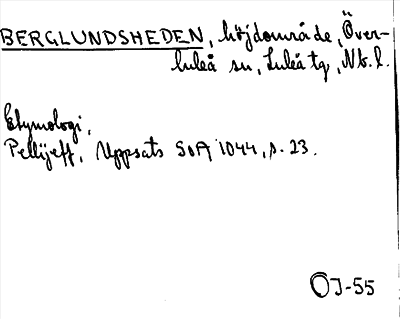 BERGLUNDSHEDEN, höjdområde, Över-
luleå sn, Luleå tg, Nb. l.
Etymologi,
Pellijeff, Uppsats SOA 1044, s. 23.
OJ-55